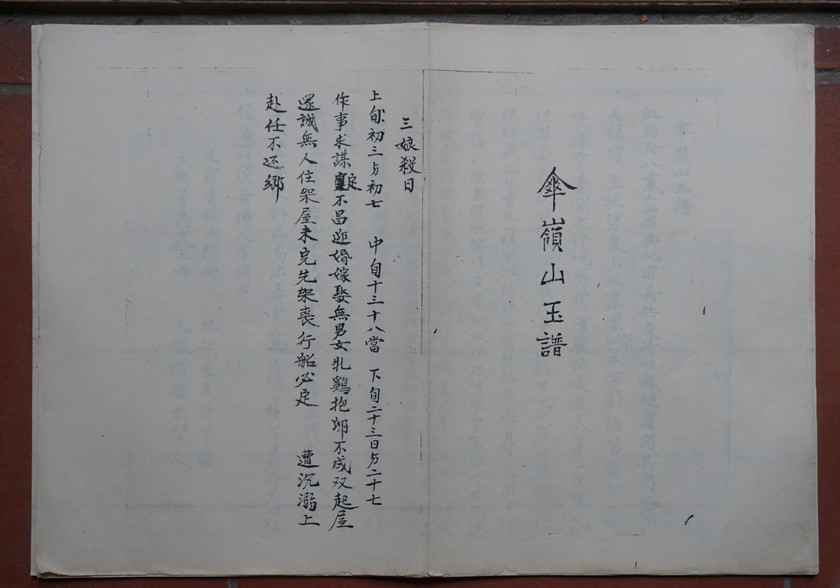 傘嶺山玉譜
三娘殺日
上旬初三与初七 中旬十三十八當 下旬二十三日与二十七
作事求謀定不昌迎婚嫁娶無男女乳鷄抱卵不成双起屋
還誠無人住架屋未完先架喪行船必定 遭沉溺上
赴任不还鄉